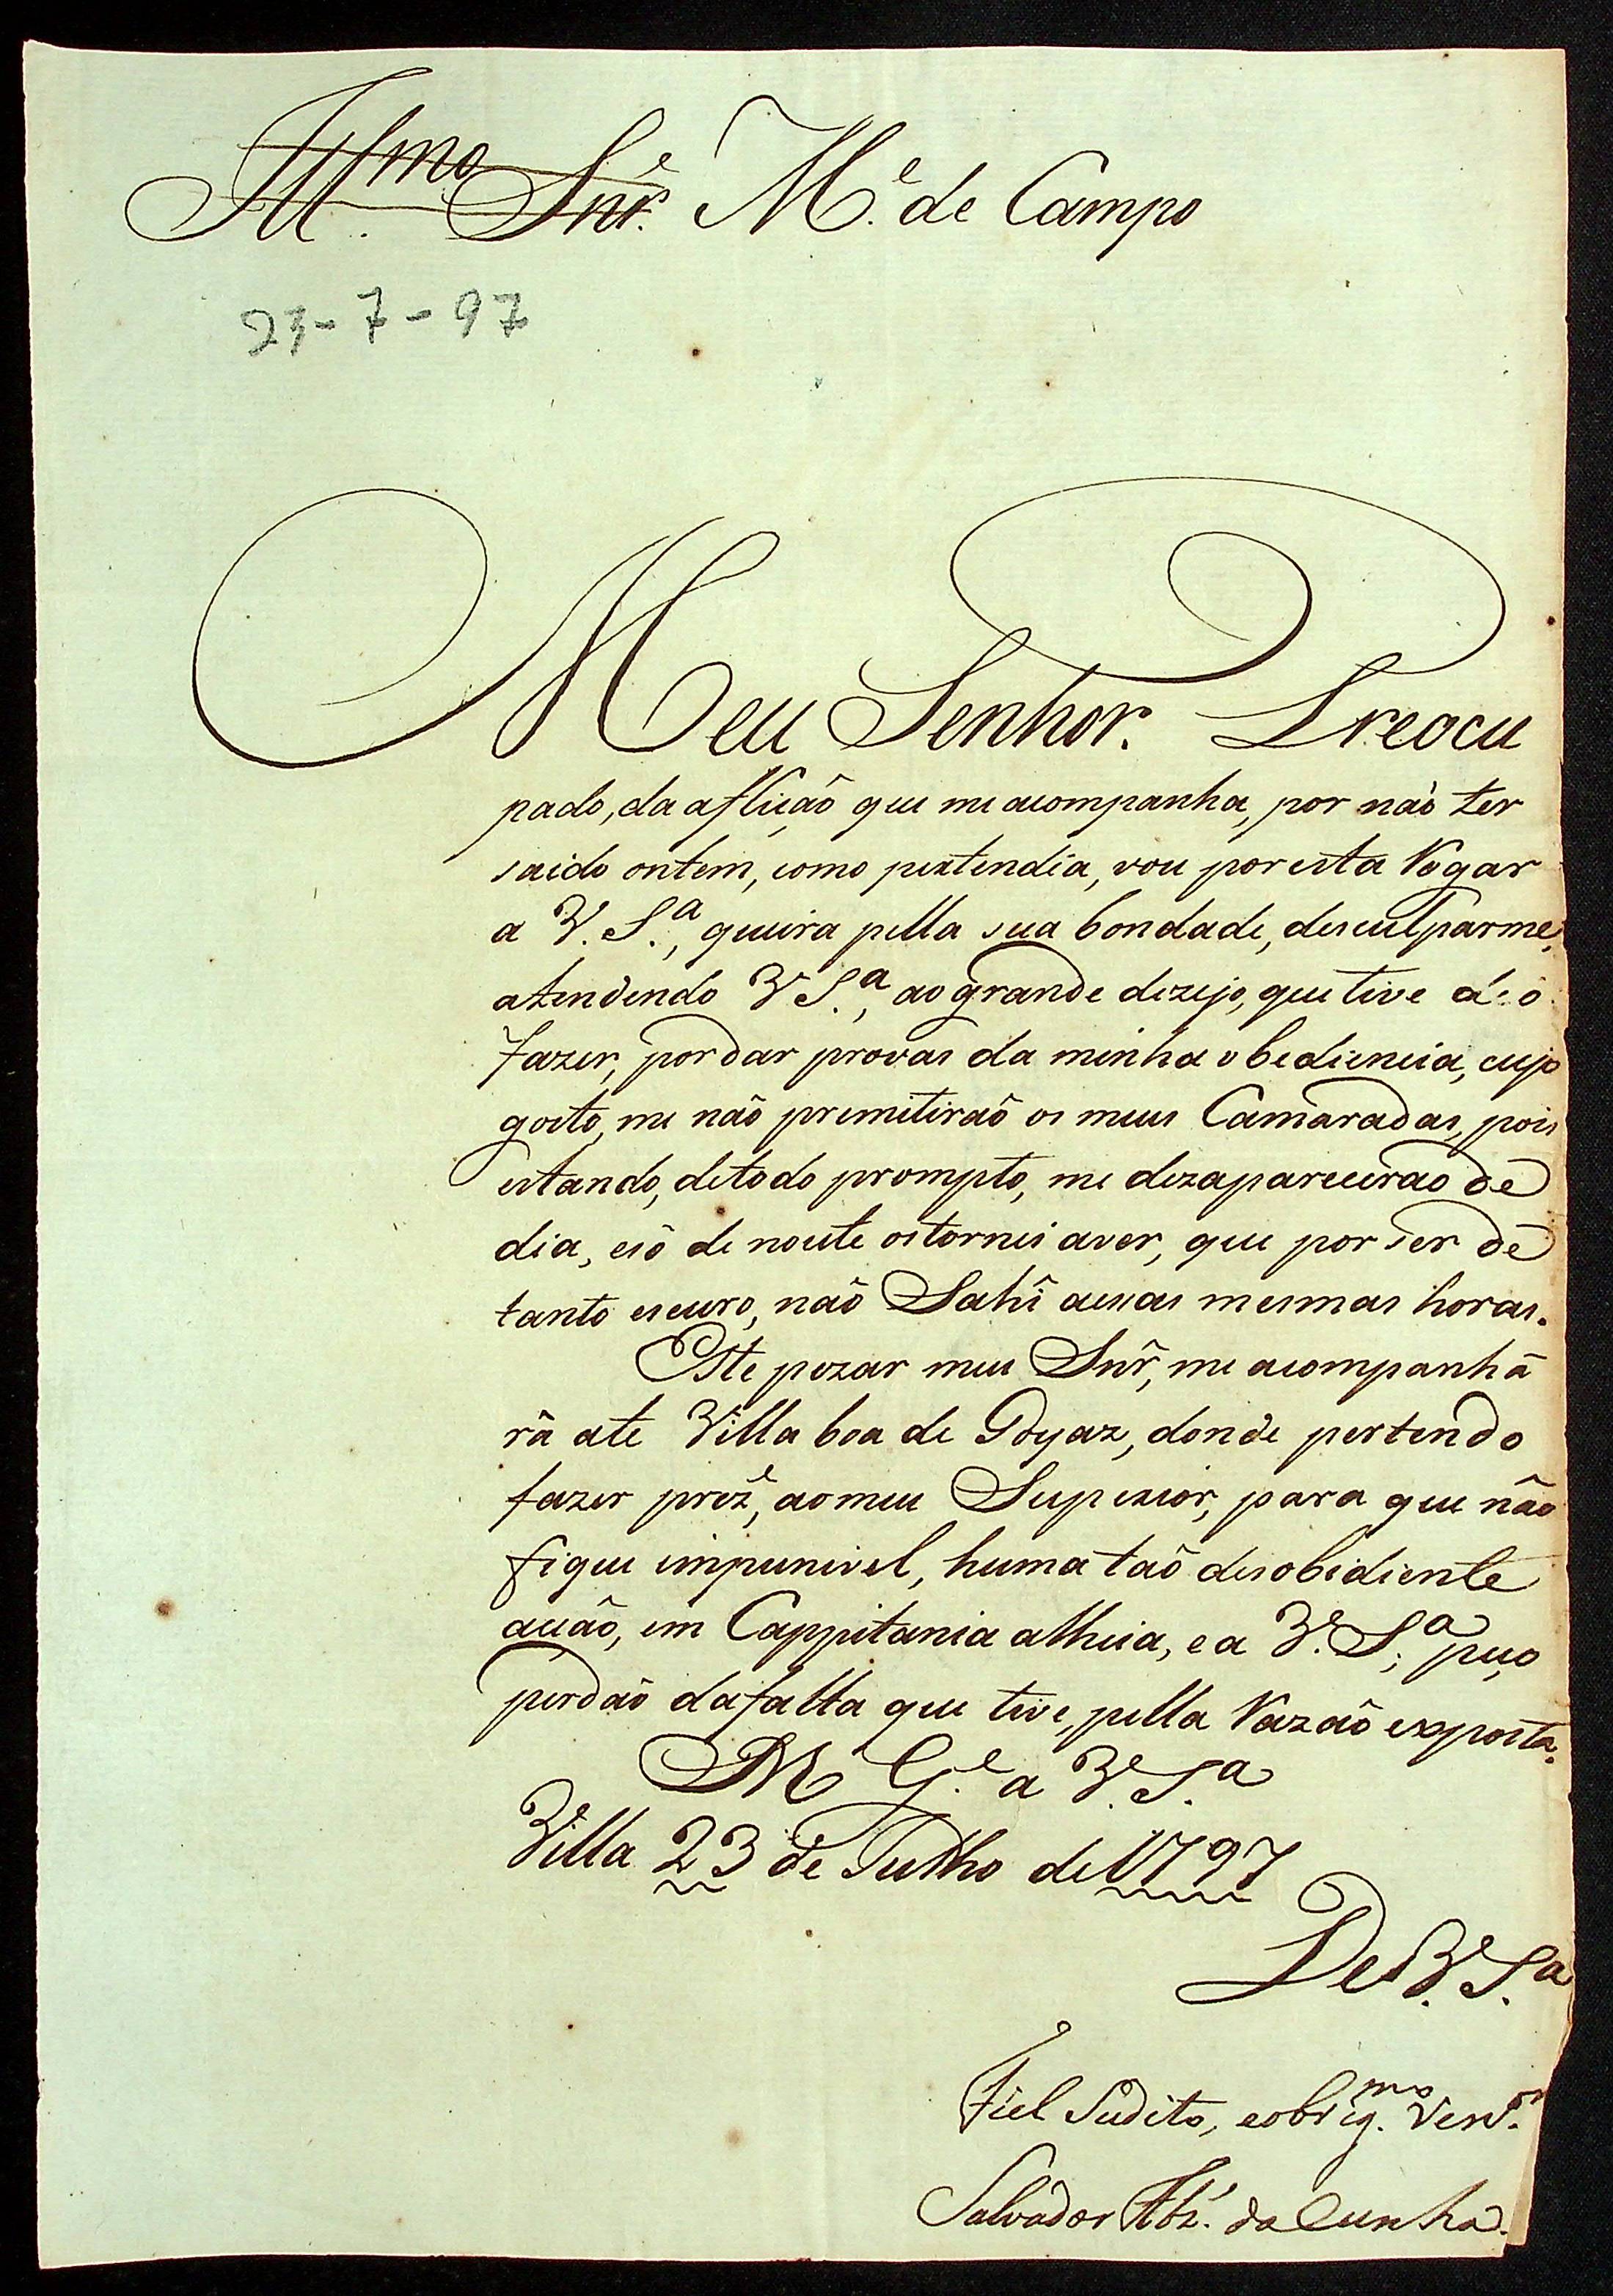 Ill.mo Snr.e M.e de Campo
23-7-97
Meu Senhor. Preocu
pado, da aflição que me acompanha, por não ter
saido ontem, como pertendia, vou por esta Rogar
a V. S.a, queira pella sua bondade, desculparme,
atendendo V S.a, ao grande dezejo, que tive de o
fazer, por dar provas da minha obediencia, cujo
gosto, me não premitirão os meus Camaradas, pois
estando, de todo prompto, me dezaparecerao de
dia, e só de noute os tornei aver, que por ser de
tanto escuro, não Sahi aessas mesmas horas.
Este pezar meu Snr, me acompanhá
rá ate Villa boa de Goyaz, donde pertendo
fazer prez.e, aomeu Superior, para que não
fique impunivel, huma tão desobidiente
acção, em Cappitania alheia, e a V.e S.a; peço
perdão dafalta que tive, pella Razão exposta.
D G.e a V.e S.a
Villa 23 de Julho de 1797
De V.e S.a
Fiel Sudito, eobrig.mo Ven.or
Salvador da Cunha.